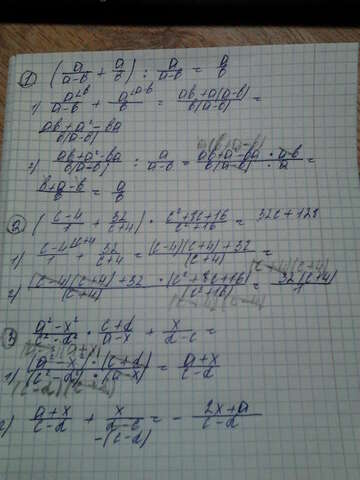 1) (a/(a-b) + a/b) : a/(a-b) = a/b
1) a/(a-b) + a/b = (ab+a(a-b))/(b(a-b)) =
(ab+a²-ba)/(b(a-b))
2) (ab+a²-ba)/(b(a-b)) : a/(a-b) = (ab+a²-ba)/(b(a-b)) · (a-b)/a =
(b+a-b)/b = a/b
2) ((c-4)/1 + 32/(c+4)) · (c²+8c+16)/(c²+16) = 32c+128
1) (c-4)/1 + 32/(c+4) = ((c-4)(c+4)+32)/(c+4) =
2) ((c-4)(c+4)+32)/(c+4) · (c²+8c+16)/(c²+16) = 32(c+4)/1
3) (a²-x²)/(c²-d²) · (c+d)/(a-x) + x/(d-c) =
1) (a²-x²)/(c²-d²) · (c+d)/(a-x) = (a+x)/(c-d)
2) (a+x)/(c-d) + x/(d-c) = - (2x+a)/(c-d)
-(c-d)